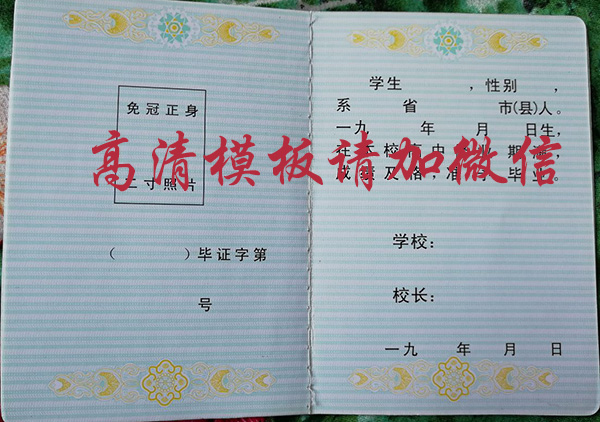 免冠正身
二寸照片
( )毕证字第
号
学生 ，性别 ，
系 省 市(县)人。
一九 年 月 日生，
在本校高中 业 期满，
成绩及格，准予 毕业。
高清模板请加微信
学校：
校长：
一九 年 月 日